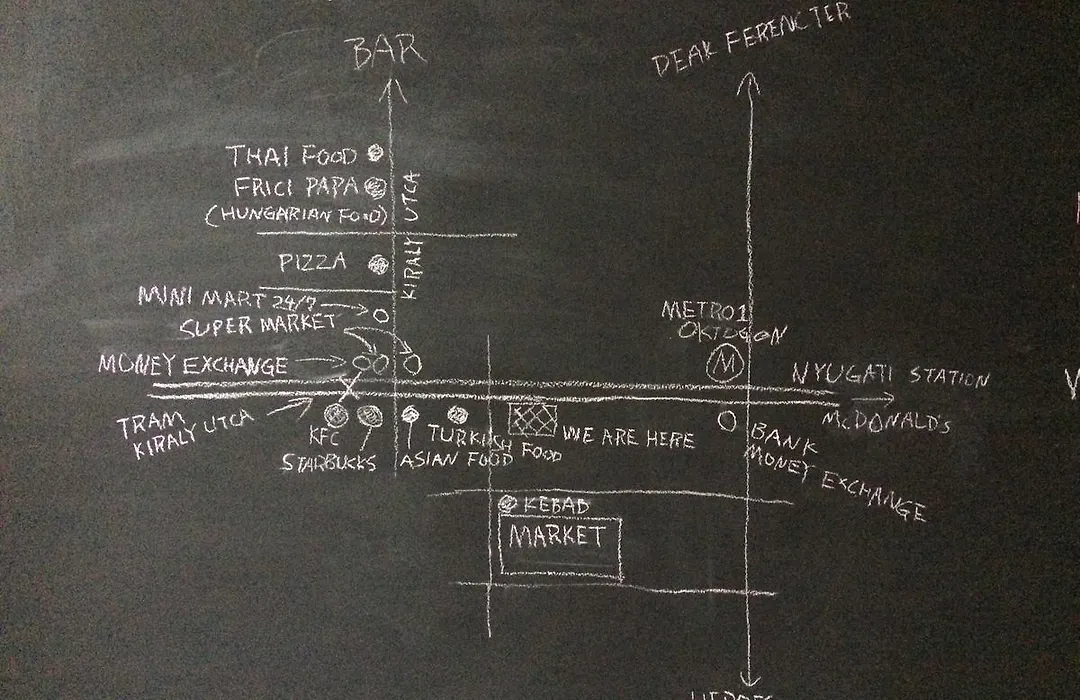 BAR
DEAK FERENC TER
THAI FOOD
FRICI PAPA
(HUNGARIAN FOOD)
KIRALY UTCA
PIZZA
MINI MART 24/7
SUPER MARKET
MONEY EXCHANGE
METRO1
OKTOGON
M
NYUGATI STATION
McDONALD'S
TRAM
KIRALY UTCA
KFC
STARBUCKS
ASIAN FOOD
TURKISH FOOD
WE ARE HERE
BANK
MONEY EXCHANGE
KEBAB
MARKET